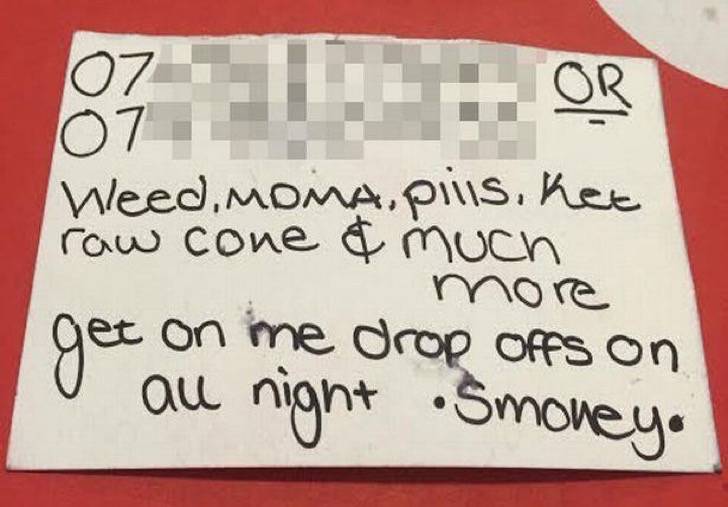 07 OR
07
Weed, MDMA, pills, Ket
raw cone & much
more
get on me drop offs on
all night •Smokey•